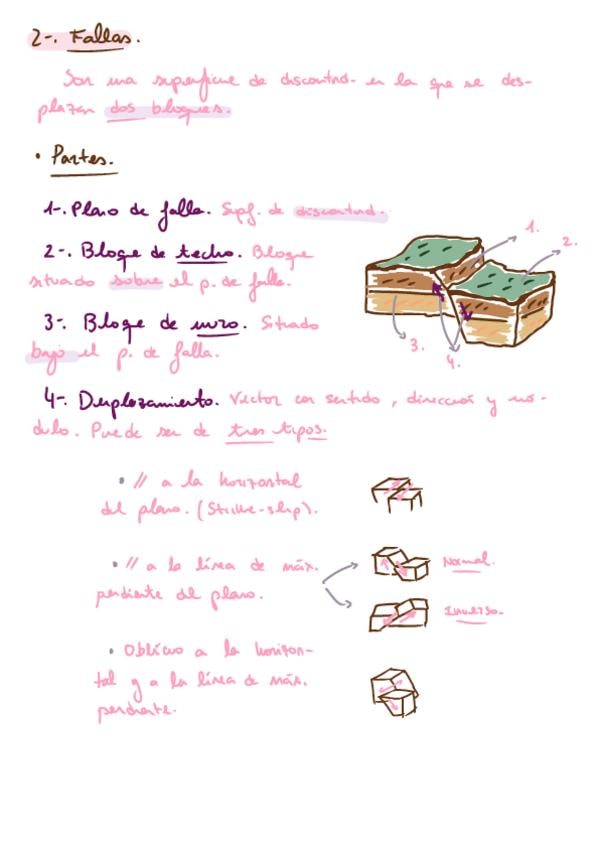 2-. Fallas.
Son una superficie de discontnd- en la que se des-
plazan dos bloques.
• Partes.
1-. Plano de falla. Supf. de discontnd.
2-. Bloque de techo. Bloque
situado sobre el p. de falla.
3-. Bloque de muro. Situado
bajo el p. de falla.
1.
2.
3.
4.
4-. Desplazamiento. Vector con sentido, dirección y mó-
dulo. Puede ser de tres tipos.
• // a la horizontal
del plano. (Strike-slip).
• // a la línea de máx.
pendiente del plano.
Normal.
Inversa.
• Oblicuo a la horizon-
tal y a la línea de máx.
pendiente.